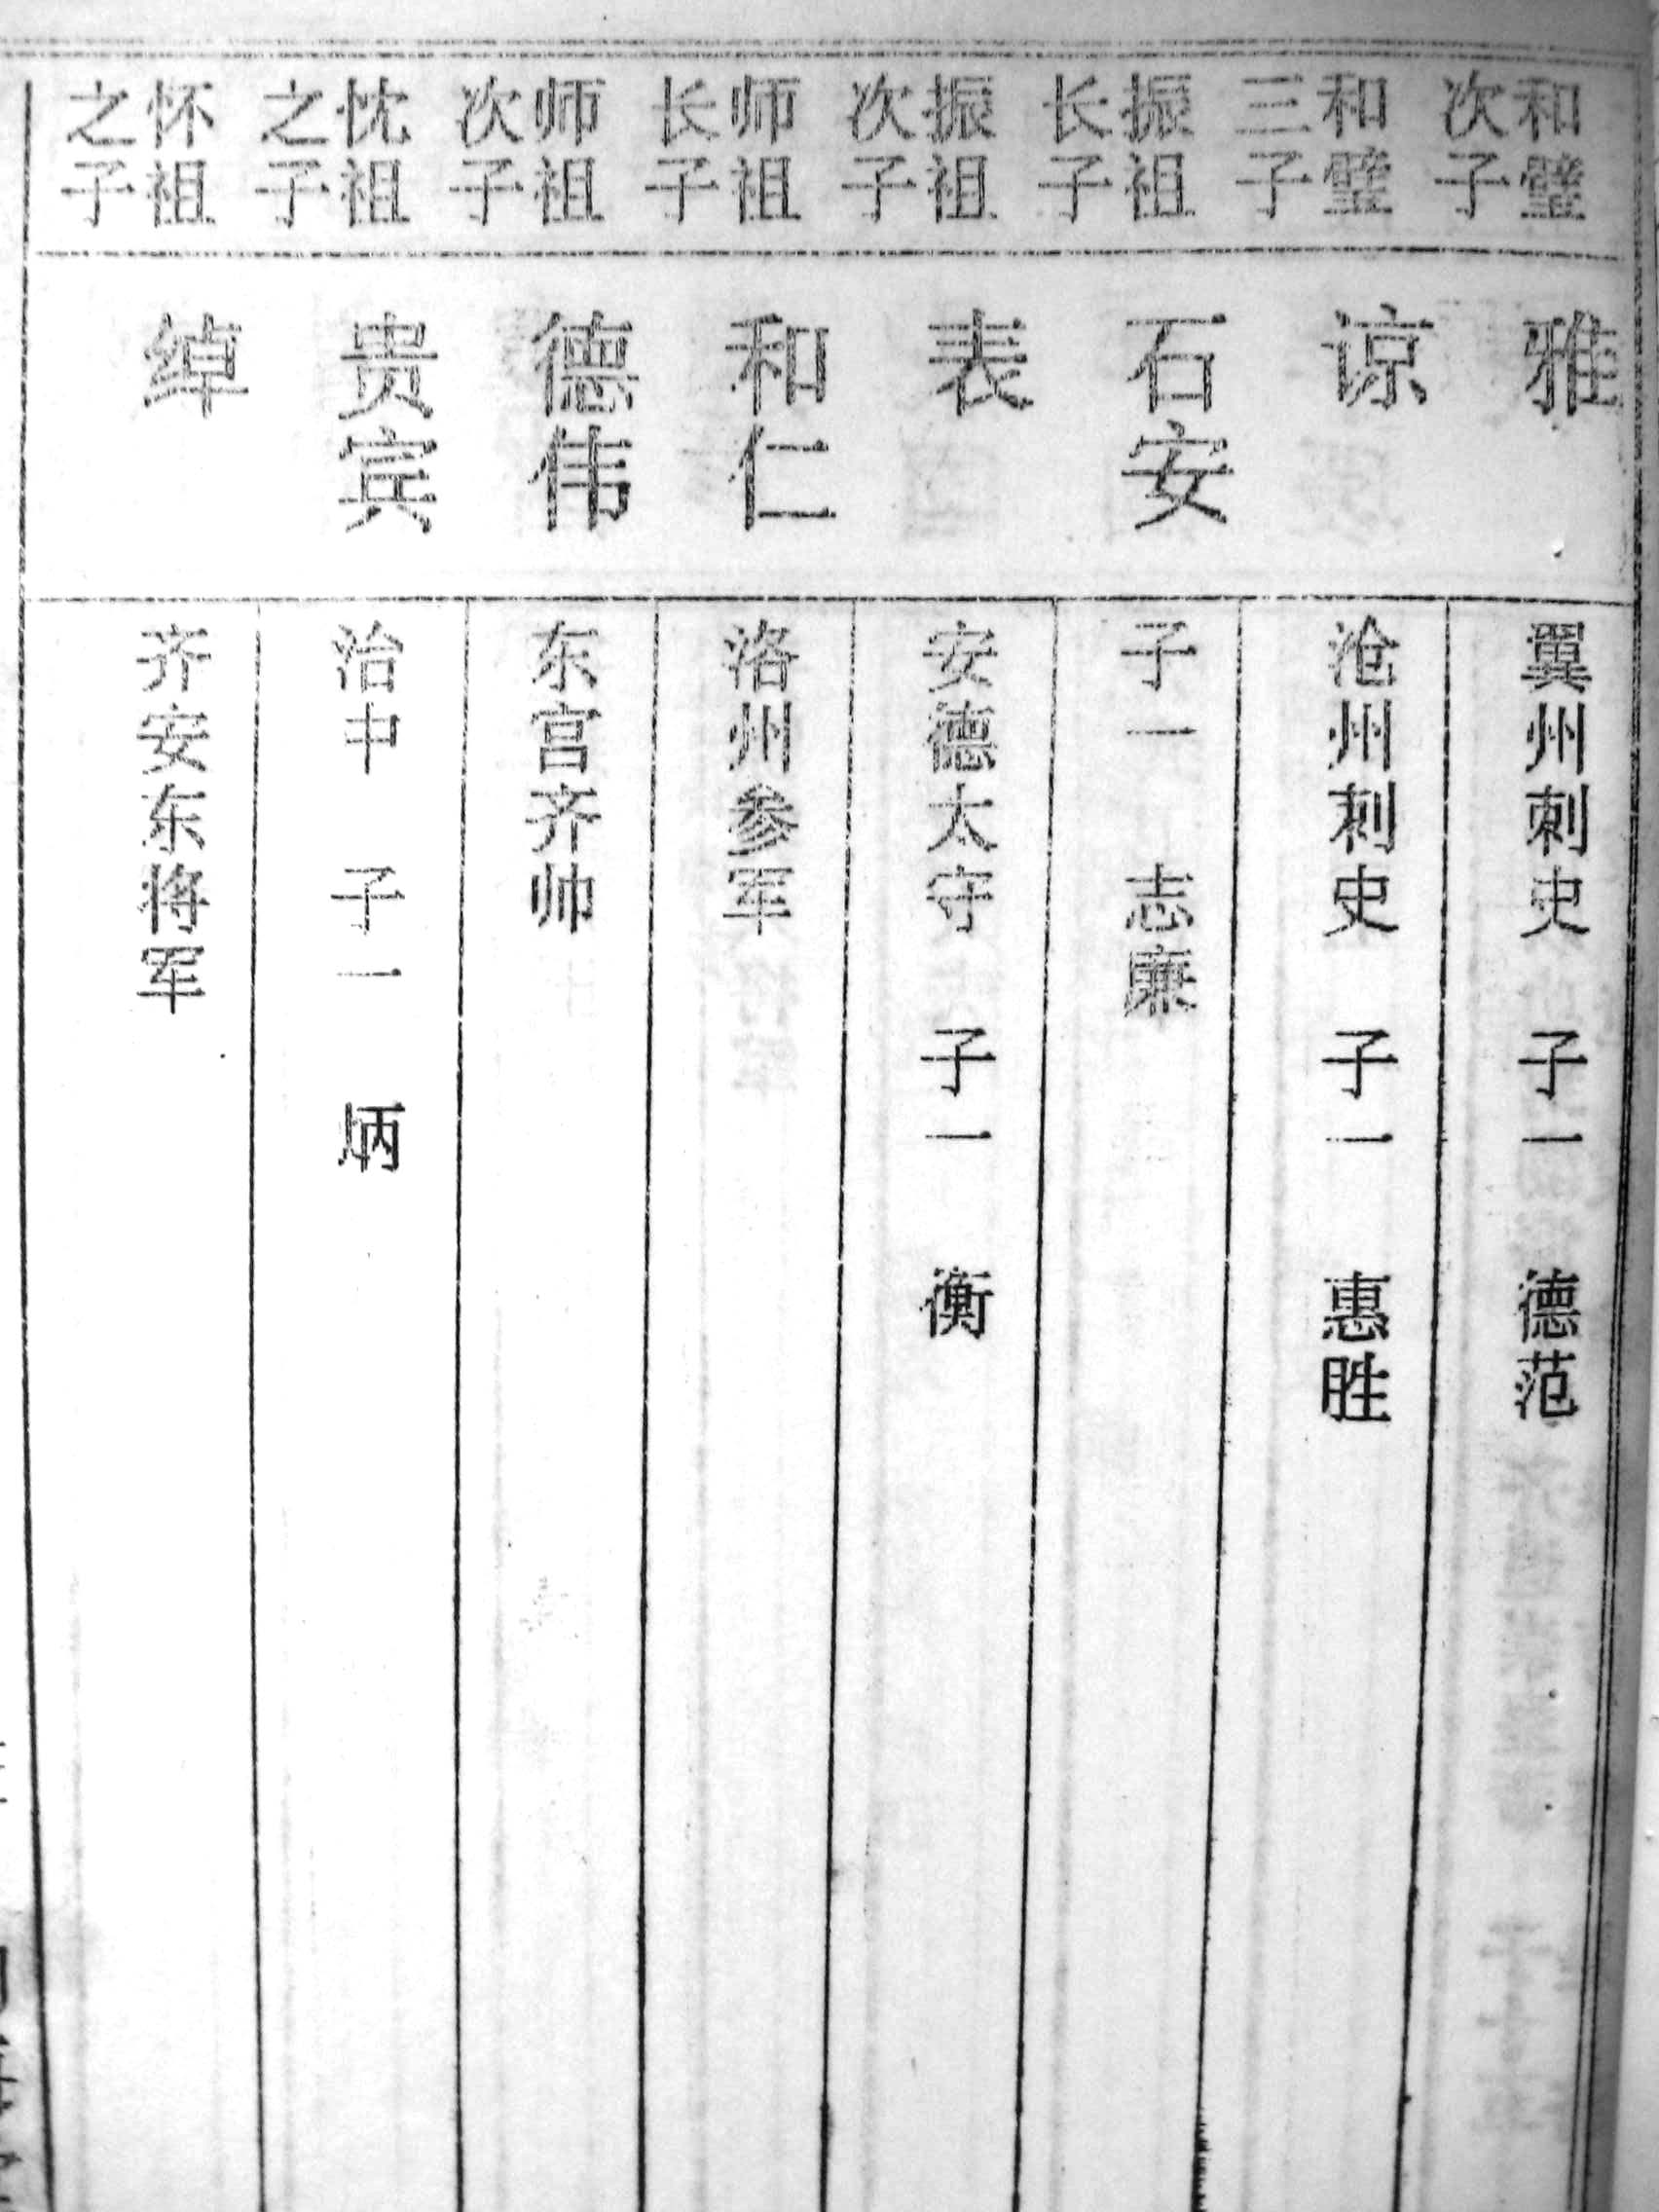 和璧
次子
雅
翼州刺史 子一 德范
和璧
三子
谅
沧州刺史 子一 惠胜
振祖
长子
石安
子一 志廉
振祖
次子
表
安德太守 子一 衡
师祖
长子
和仁
洛州参军
师祖
次子
德伟
东宫齐帅
忱祖
之子
贵宾
治中 子一 炳
怀祖
之子
绰
齐安东将军